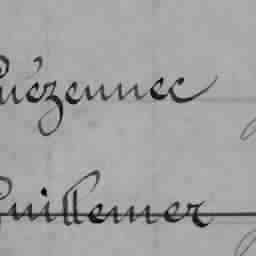 Guézennec
Guillemer